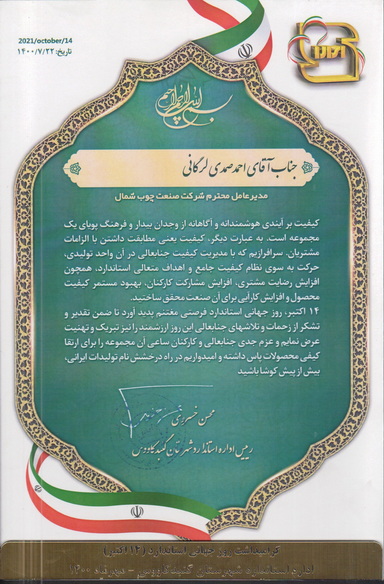 2021/october/14
تاریخ: ۱۴۰۰/۷/۲۲
بسم الله الرحمن الرحیم
جناب آقای احمد صمدی لرگانی
مدیرعامل محترم شرکت صنعت چوب شمال
کیفیت برآیندی هوشمندانه و آگاهانه از وجدان بیدار و فرهنگ پویای یک
مجموعه است. به عبارت دیگر، کیفیت یعنی مطابقت داشتن با الزامات
مشتریان. سرافرازیم که با مدیریت کیفیت جنابعالی در آن واحد تولیدی،
حرکت به سوی نظام کیفیت جامع و اهداف متعالی استاندارد، همچون
افزایش رضایت مشتری، افزایش مشارکت کارکنان، بهبود مستمر کیفیت
محصول و افزایش کارایی برای آن صنعت محقق ساختید.
۱۴ اکتبر، روز جهانی استاندارد فرصتی مغتنم پدید آورد تا ضمن تقدیر و
تشکر از زحمات و تلاشهای جنابعالی این روز ارزشمند را نیز تبریک و تهنیت
عرض نمایم و عزم جدی جنابعالی و کارکنان ساعی آن مجموعه را برای ارتقا
کیفی محصولات پاس داشته و امیدواریم در راه درخشش نام تولیدات ایرانی،
بیش از پیش کوشا باشید
محسن خسروی
رییس اداره استاندارد شهرستان گنبدکاووس
گرامیداشت روز جهانی استاندارد (۱۴ اکتبر)
اداره استاندارد شهرستان گنبدکاووس - مهرماه ۱۴۰۰